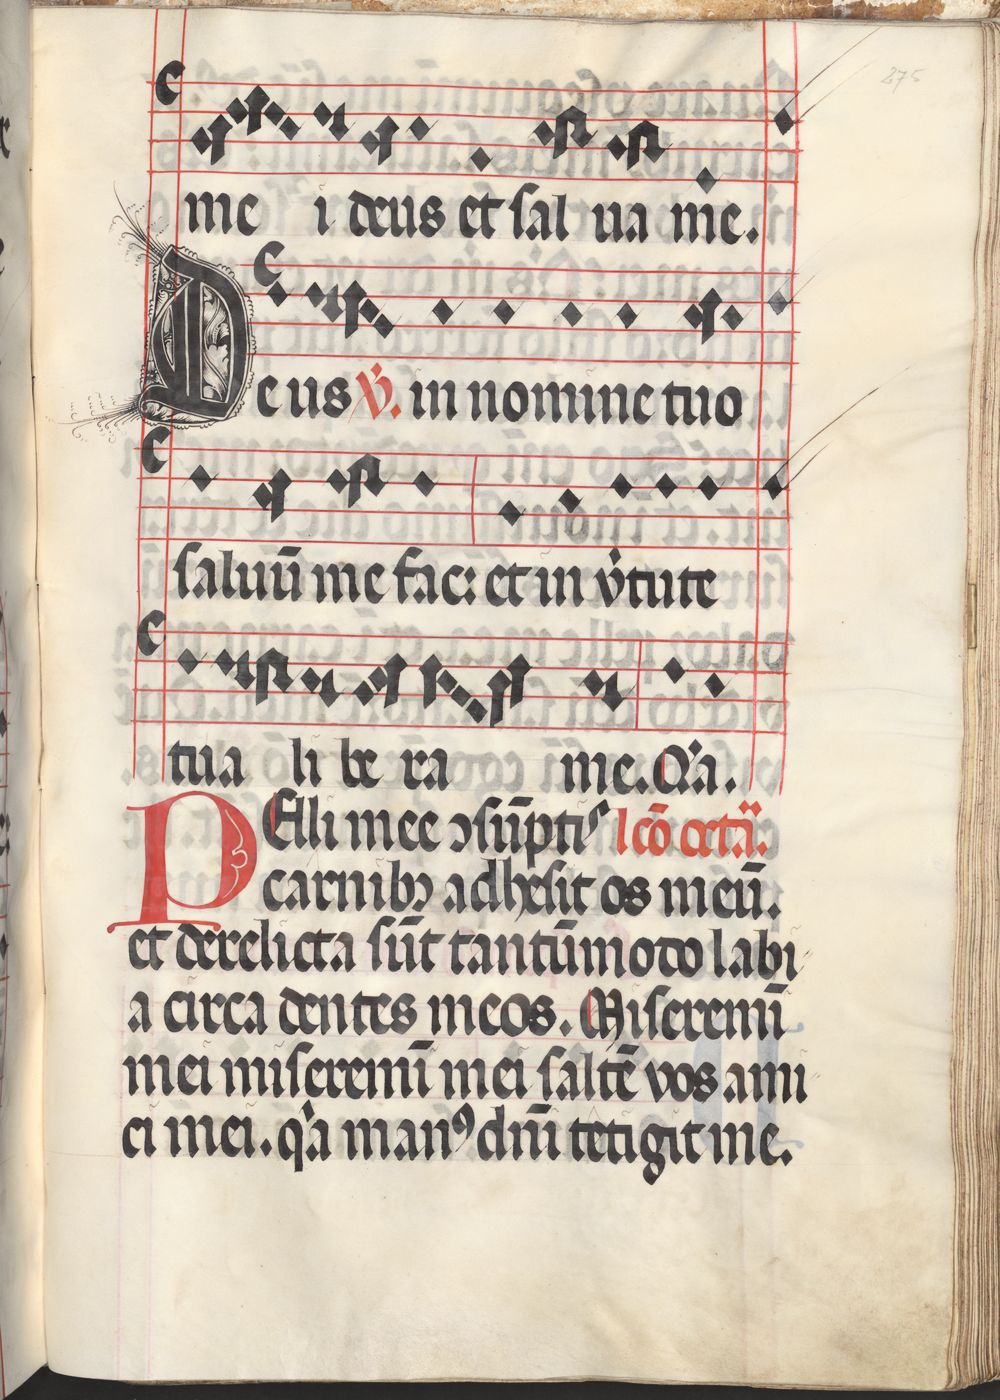 275
me i deus et sal ua me.
Deus ℣. in nomine tuo
saluū me fac: et in v̓tute
tua li be ra me. Q̓a.
PElli mee ↄsūptis lcō octā.
carnibꝫ adhesit os meū.
et derelicta sūt tantūmodo labi
a circa dentes meos. Miseremī
mei miseremī mei saltē vos ami
ci mei. q̓a manꝰ dm̄i tetigit me.